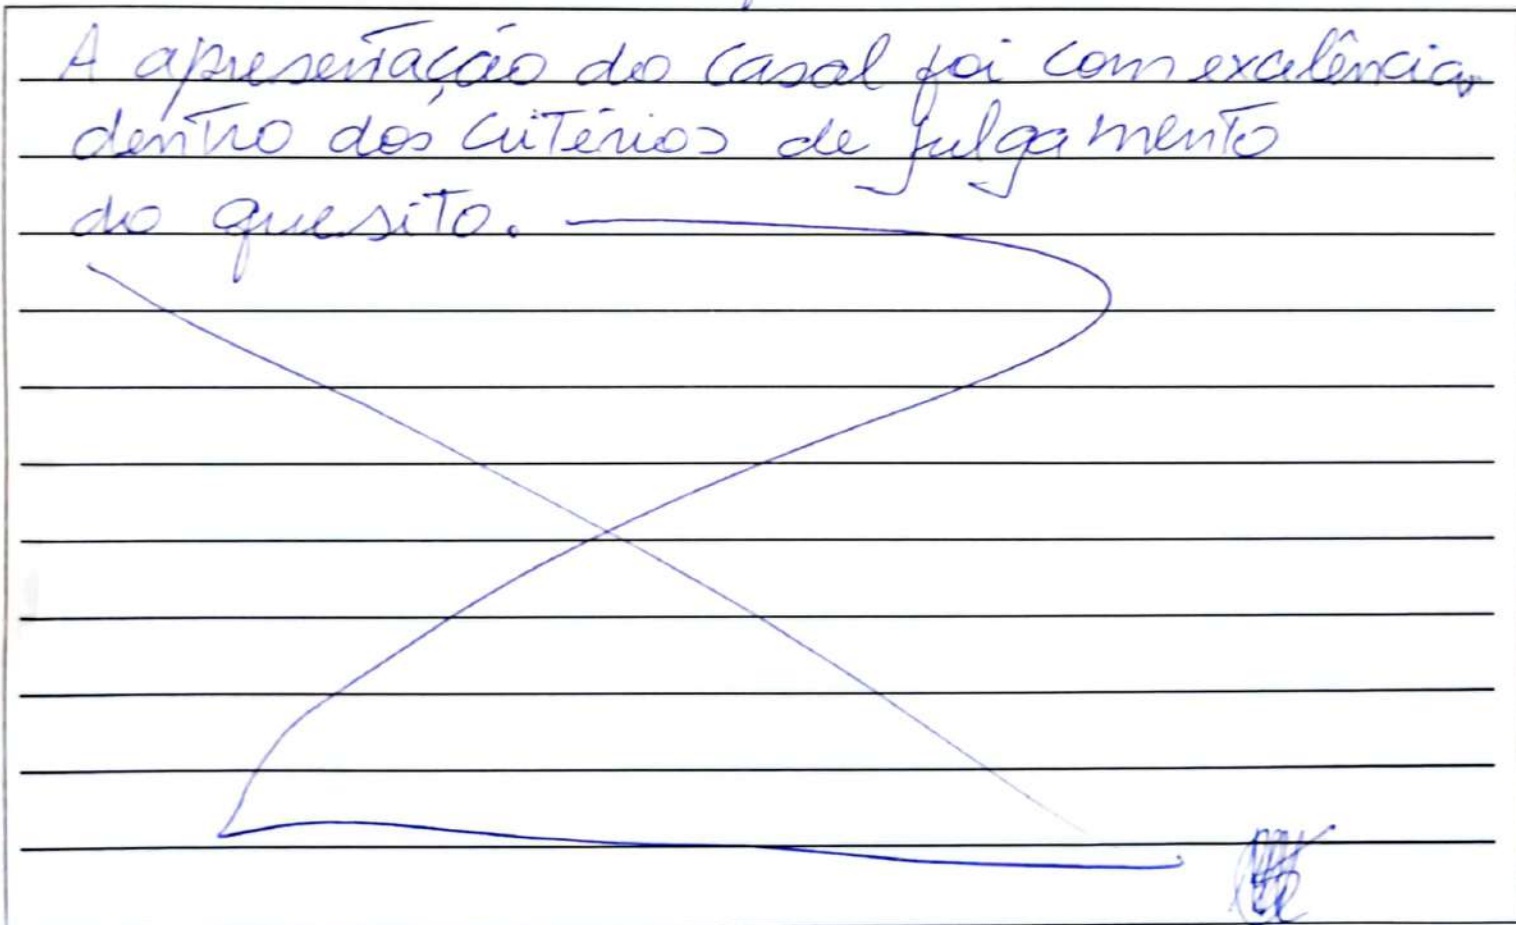 A apresentação do casal foi com excelência,
dentro dos critérios de julgamento
do quesito.